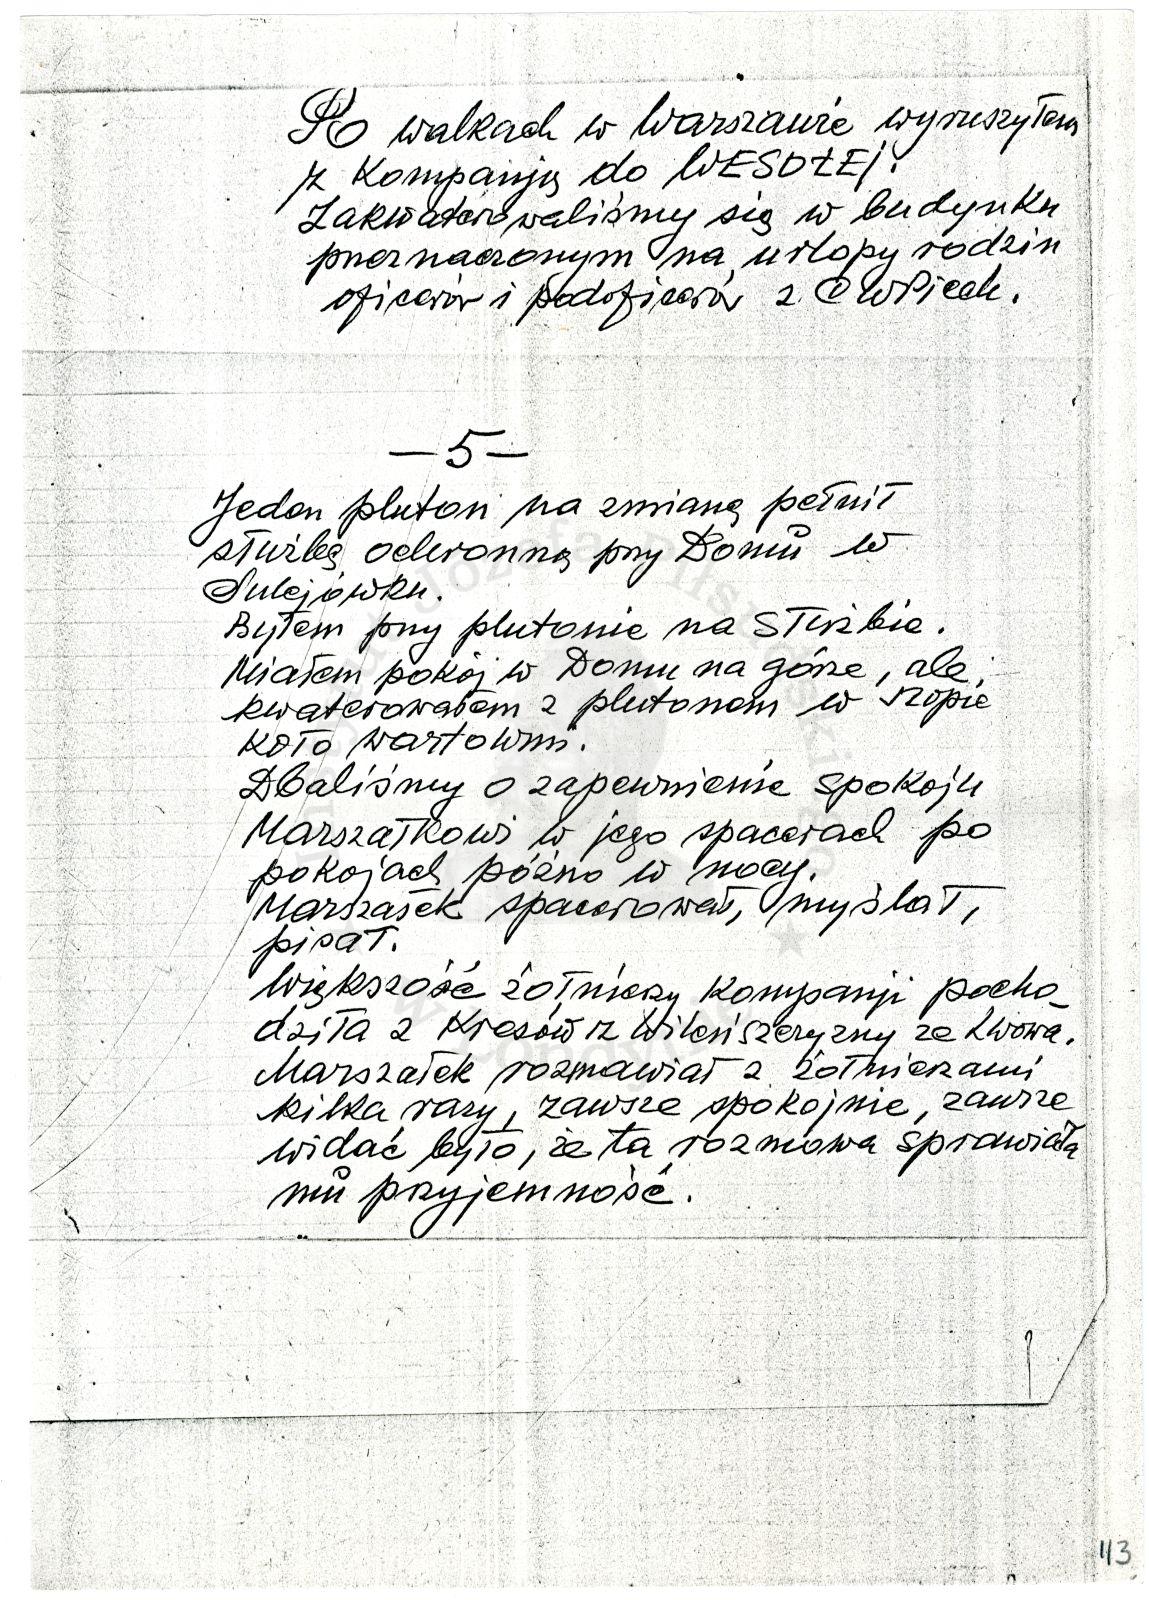 Po walkach w Warszawie wyruszyłem
z Kompanją do WESOŁEJ.
Zakwaterowaliśmy się w budynku
przeznaczonym na urlopy rodzin
oficerów i podoficerów z CWPiech.
—5—
Jeden pluton na zmianę pełnił
służbę ochronną przy Domu w
Sulejówku.
Byłem przy plutonie na Służbie.
Miałem pokój w Domu na górze, ale
kwaterowałem z plutonem w szopie
koło wartowni.
Dbaliśmy o zapewnienie spokoju
Marszałkowi w jego spacerach po
pokojach późno w nocy.
Marszałek spacerował, myślał,
pisał.
Większość żołnierzy Kompanji pocho-
dziła z Kresów z Wileńszczyzny ze Lwowa.
Marszałek rozmawiał z żołnierzami
kilka razy, zawsze spokojnie, zawsze
widać było, że ta rozmowa sprawiała
mu przyjemność.
113